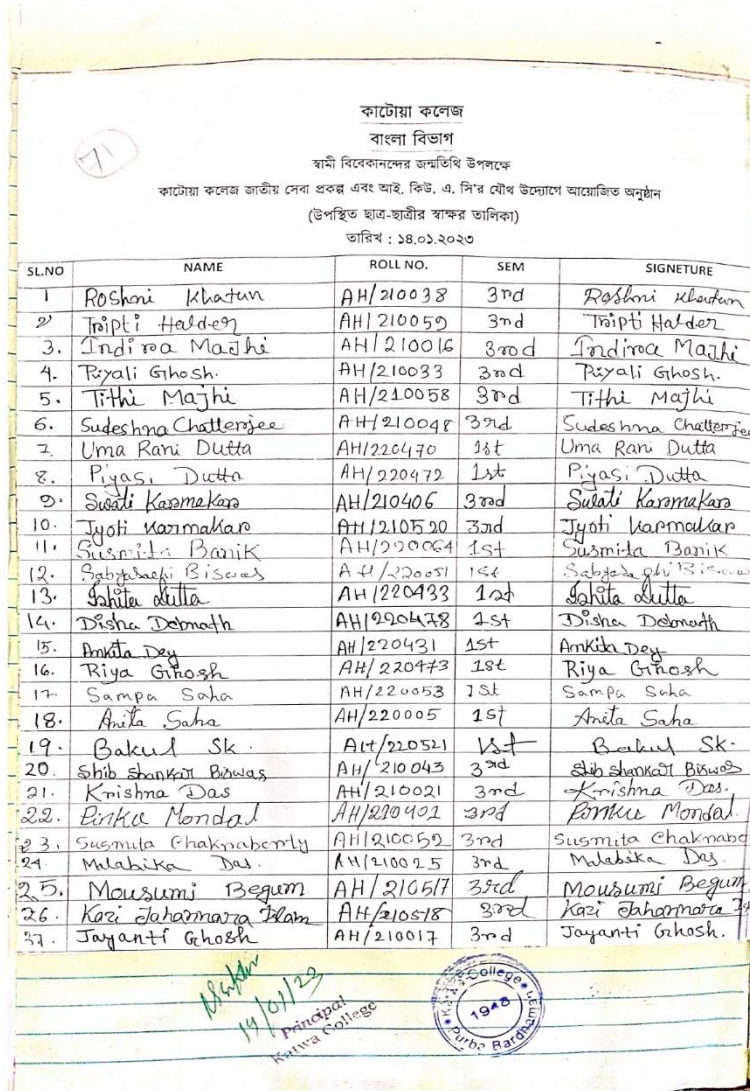 71
কাটোয়া কলেজ
বাংলা বিভাগ
স্বামী বিবেকানন্দের জন্মতিথি উপলক্ষে
কাটোয়া কলেজ জাতীয় সেবা প্রকল্প এবং আই. কিউ. এ. সি'র যৌথ উদ্যোগে আয়োজিত অনুষ্ঠান
(উপস্থিত ছাত্র-ছাত্রীর স্বাক্ষর তালিকা)
তারিখ : ১৪.০১.২০২৩
SL.NO NAME ROLL NO. SEM SIGNETURE
1 Roshni Khatun AH/210038 3rd Roshni Khatun
2 Tripti Halder AH/210059 3rd Tripti Halder
3. Indira Majhi AH/210016 3rd Indira Majhi
4. Piyali Ghosh. AH/210033 3rd Piyali Ghosh.
5. Tithi Majhi AH/210058 3rd Tithi Majhi
6. Sudeshna Chatterjee AH/210048 3rd Sudeshna Chatterjee
7. Uma Rani Dutta AH/220470 1st Uma Rani Dutta
8. Piyasi Dutta AH/220472 1st Piyasi Dutta
9. Swati Karmakar AH/210406 3rd Swati Karmakar
10. Jyoti Karmakar AH/210520 3rd Jyoti Karmakar
11. Susmita Banik AH/220064 1st Susmita Banik
12. Sabyasachi Biswas AH/220051 1st Sabyasachi Biswas
13. Ishita Dutta AH/220433 1st Ishita Dutta
14. Disha Debnath AH/220478 1st Disha Debnath
15. Ankita Dey AH/220431 1st Ankita Dey
16. Riya Ghosh AH/220473 1st Riya Ghosh
17. Sampa Saha AH/220053 1st Sampa Saha
18. Anita Saha AH/220005 1st Anita Saha
19. Bakul Sk. AH/220521 1st Bakul Sk.
20. Shib Shankar Biswas AH/210043 3rd Shib Shankar Biswas
21. Krishna Das AH/210021 3rd Krishna Das.
22. Pinku Mondal AH/210402 3rd Pinku Mondal.
23. Susmita Chakraborty AH/210052 3rd Susmita Chakrabo
24. Malabika Das. AH/210025 3rd Malabika Das.
25. Mousumi Begum AH/210517 3rd Mousumi Begum
26. Kazi Jahannara Islam AH/210518 3rd Kazi Jahannara
27. Jayanti Ghosh AH/210017 3rd Jayanti Ghosh.
14/01/23
Principal
Katwa College
Katwa College
1948
Purba Bardhaman